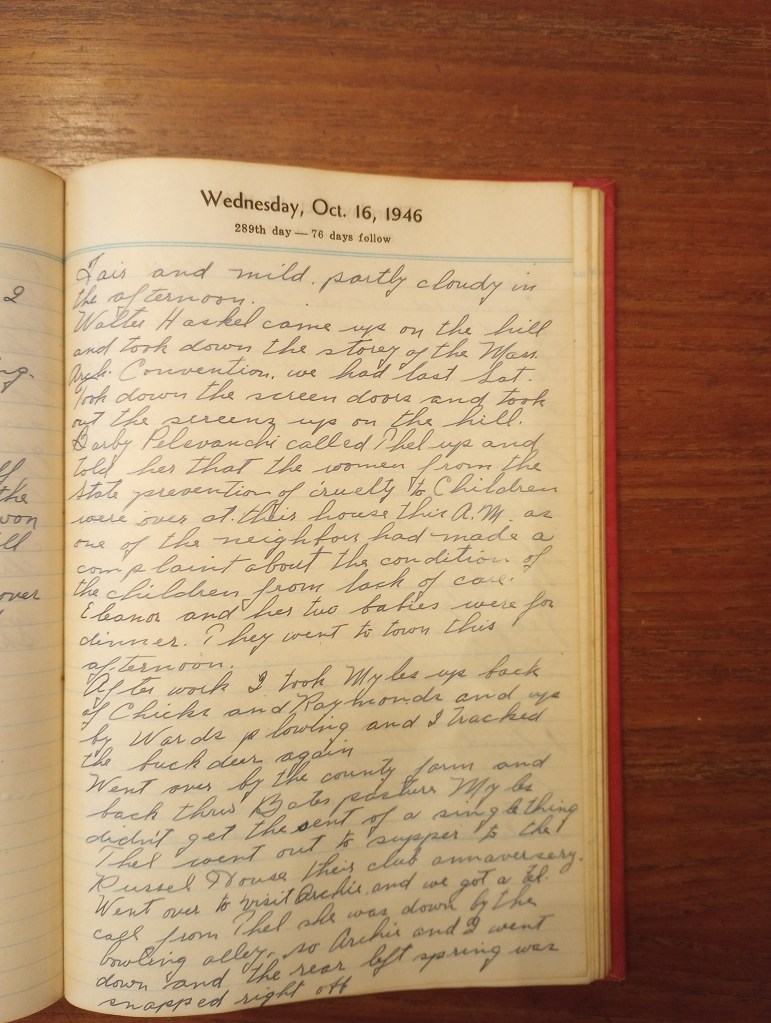 Wednesday, Oct. 16, 1946
289th day — 76 days follow
2
ng.
the
won
ll
over
Fair and mild. partly cloudy in
the afternoon.
Walter Haskel came up on the hill
and took down the storey of the Mass.
Arch. Convention. we had last Sat.
Took down the screen doors and took
out the screens up on the hill.
Darby Pelevanchi called Thel up and
told her that the women from the
State prevention of cruelty to Children
were over at their house this A.M. as
one of the neighbors had made a
complaint about the condition of
the children from lack of care.
Eleanor and her two babies were for
dinner. They went to town this
afternoon.
After work I took Myles up back
of Chicks and Raymonds and up
by Wards plowing and I tracked
the buck deer again
Went over by the county farm and
back thru Bates pasture Myles
didn't get the sent of a single thing
Thel went out to supper to the
Russel House their club annaversery.
Went over to visit Archie and we got a tel.
call from Thel she was down by the
bowling alley, so Archie and I went
down and the rear left spring was
snapped right off